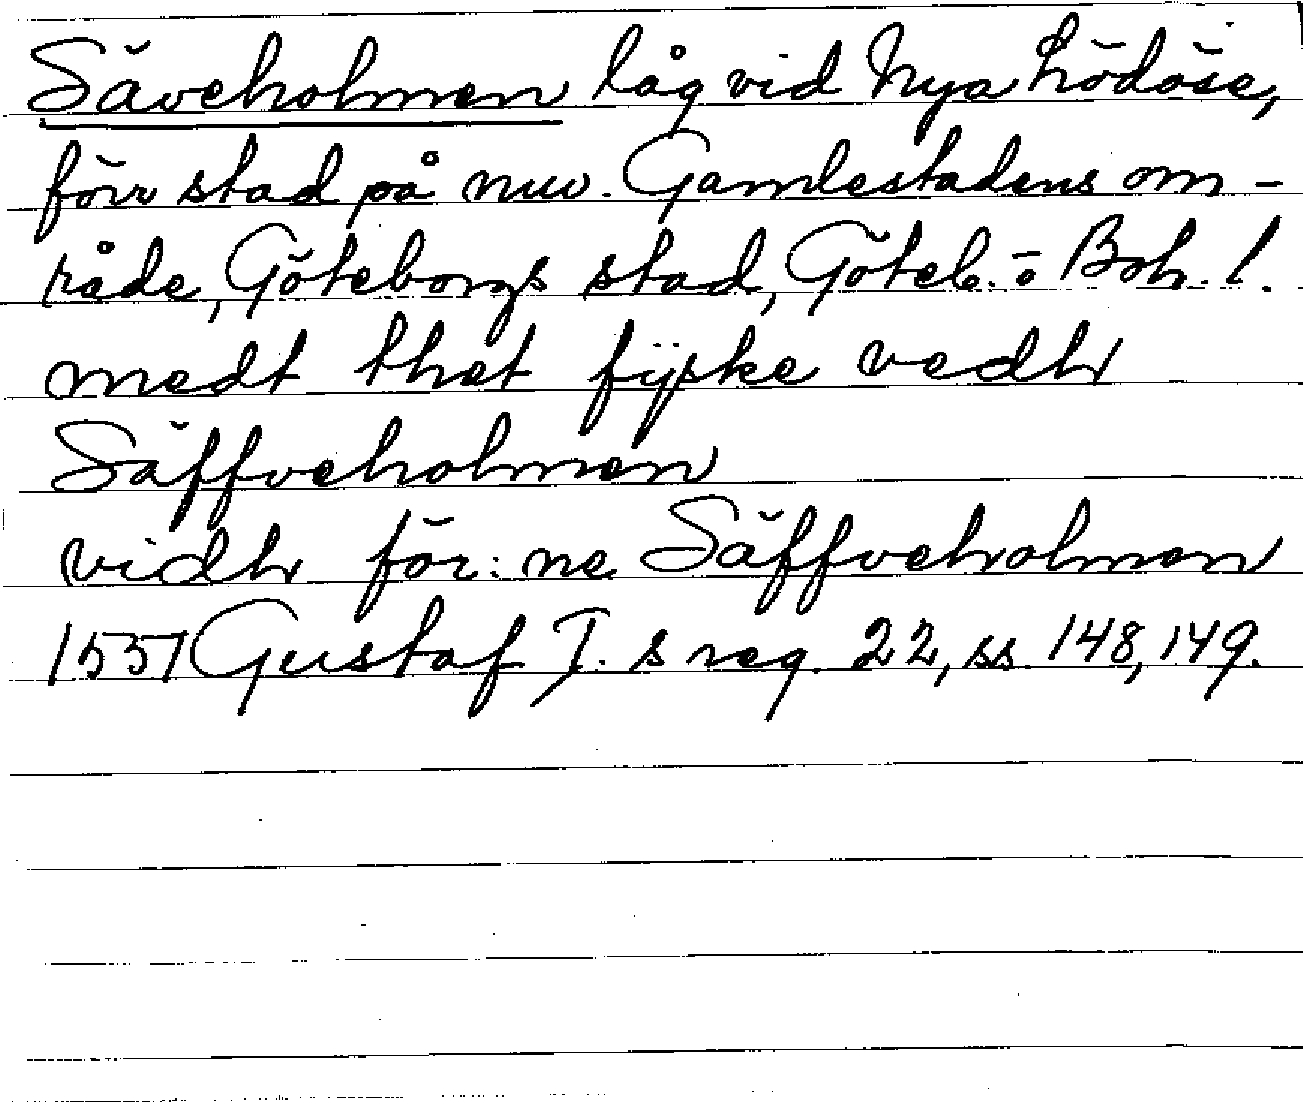 Säveholmen låg vid Nya Lödöse,
förr stad på nuv. Gamlestadens om-
råde, Göteborgs stad, Göteb. o Boh. l.
medt thet fÿske vedh
Säffveholmen
vidh för:ne Säffveholmen
1551 Gustaf I. s reg. 22, ss 148, 149.